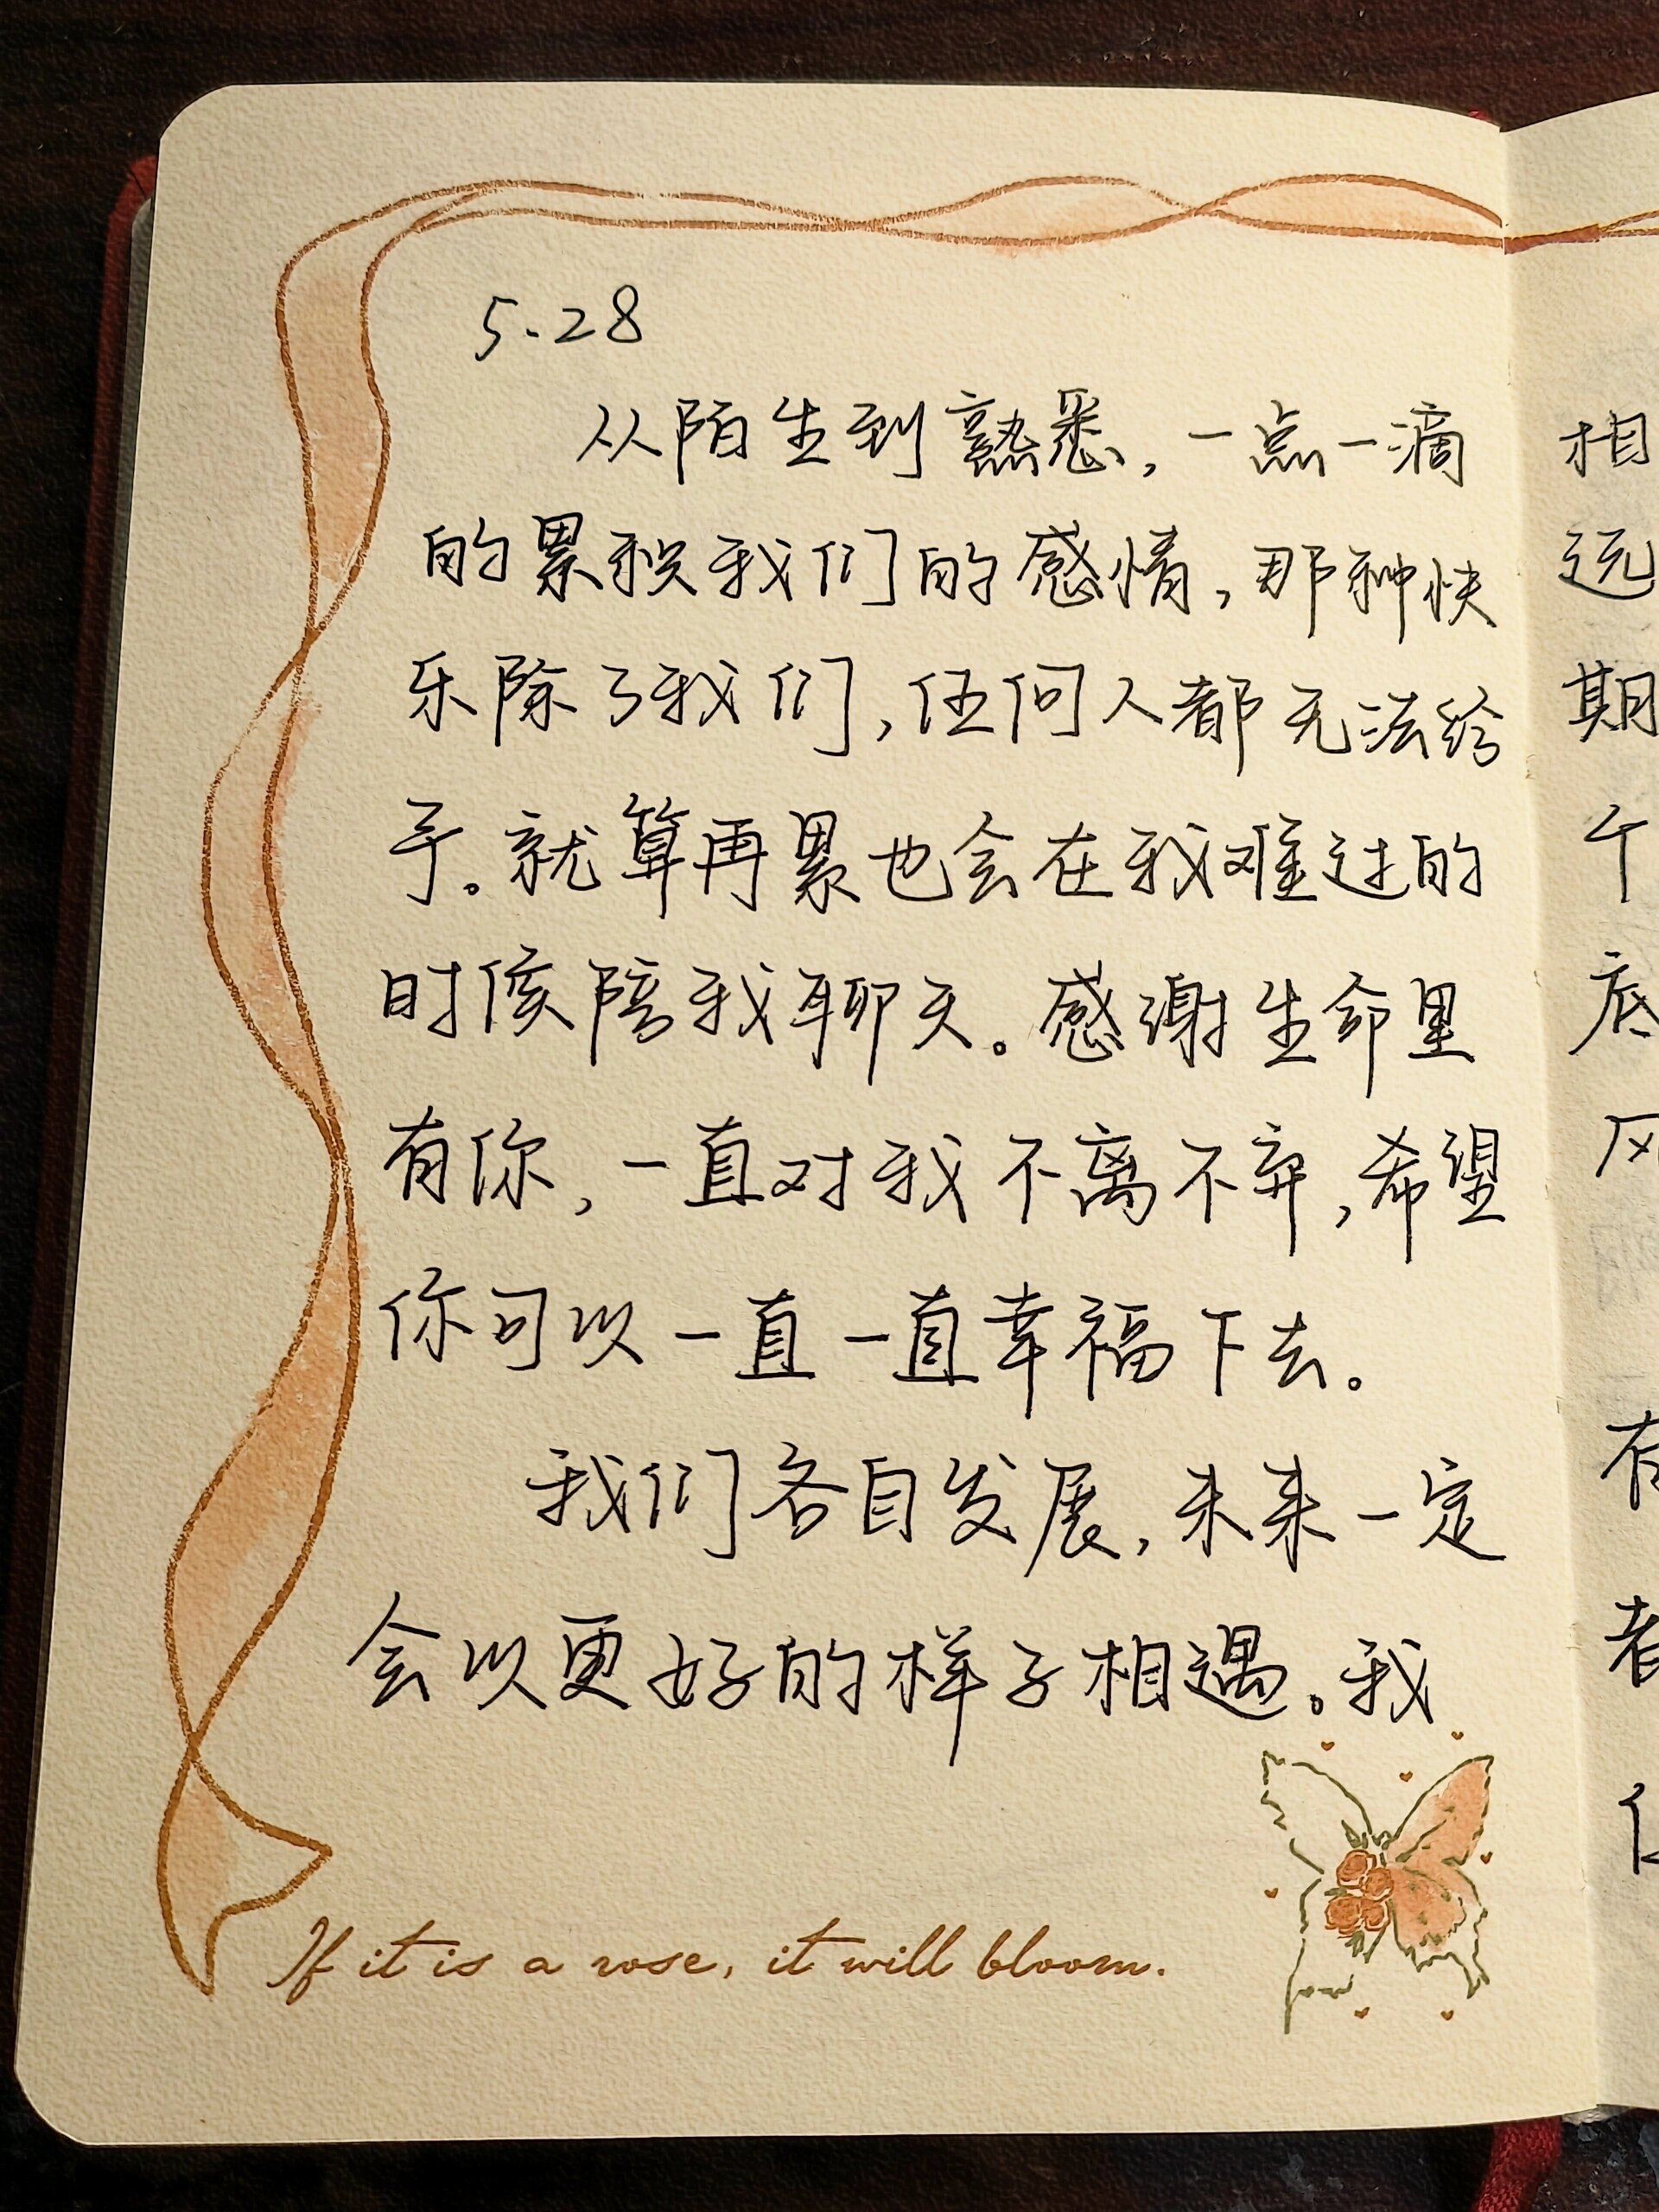 5.28
从陌生到熟悉,一点一滴
的累积我们的感情,那种快
乐除了我们,任何人都无法给
予。就算再累也会在我难过的
时候陪我聊天。感谢生命里
有你,一直对我不离不弃,希望
你可以一直一直幸福下去。
我们各自发展,未来一定
会以更好的样子相遇。我
If it is a rose, it will bloom.
相
远
期
个
底
风
有
者